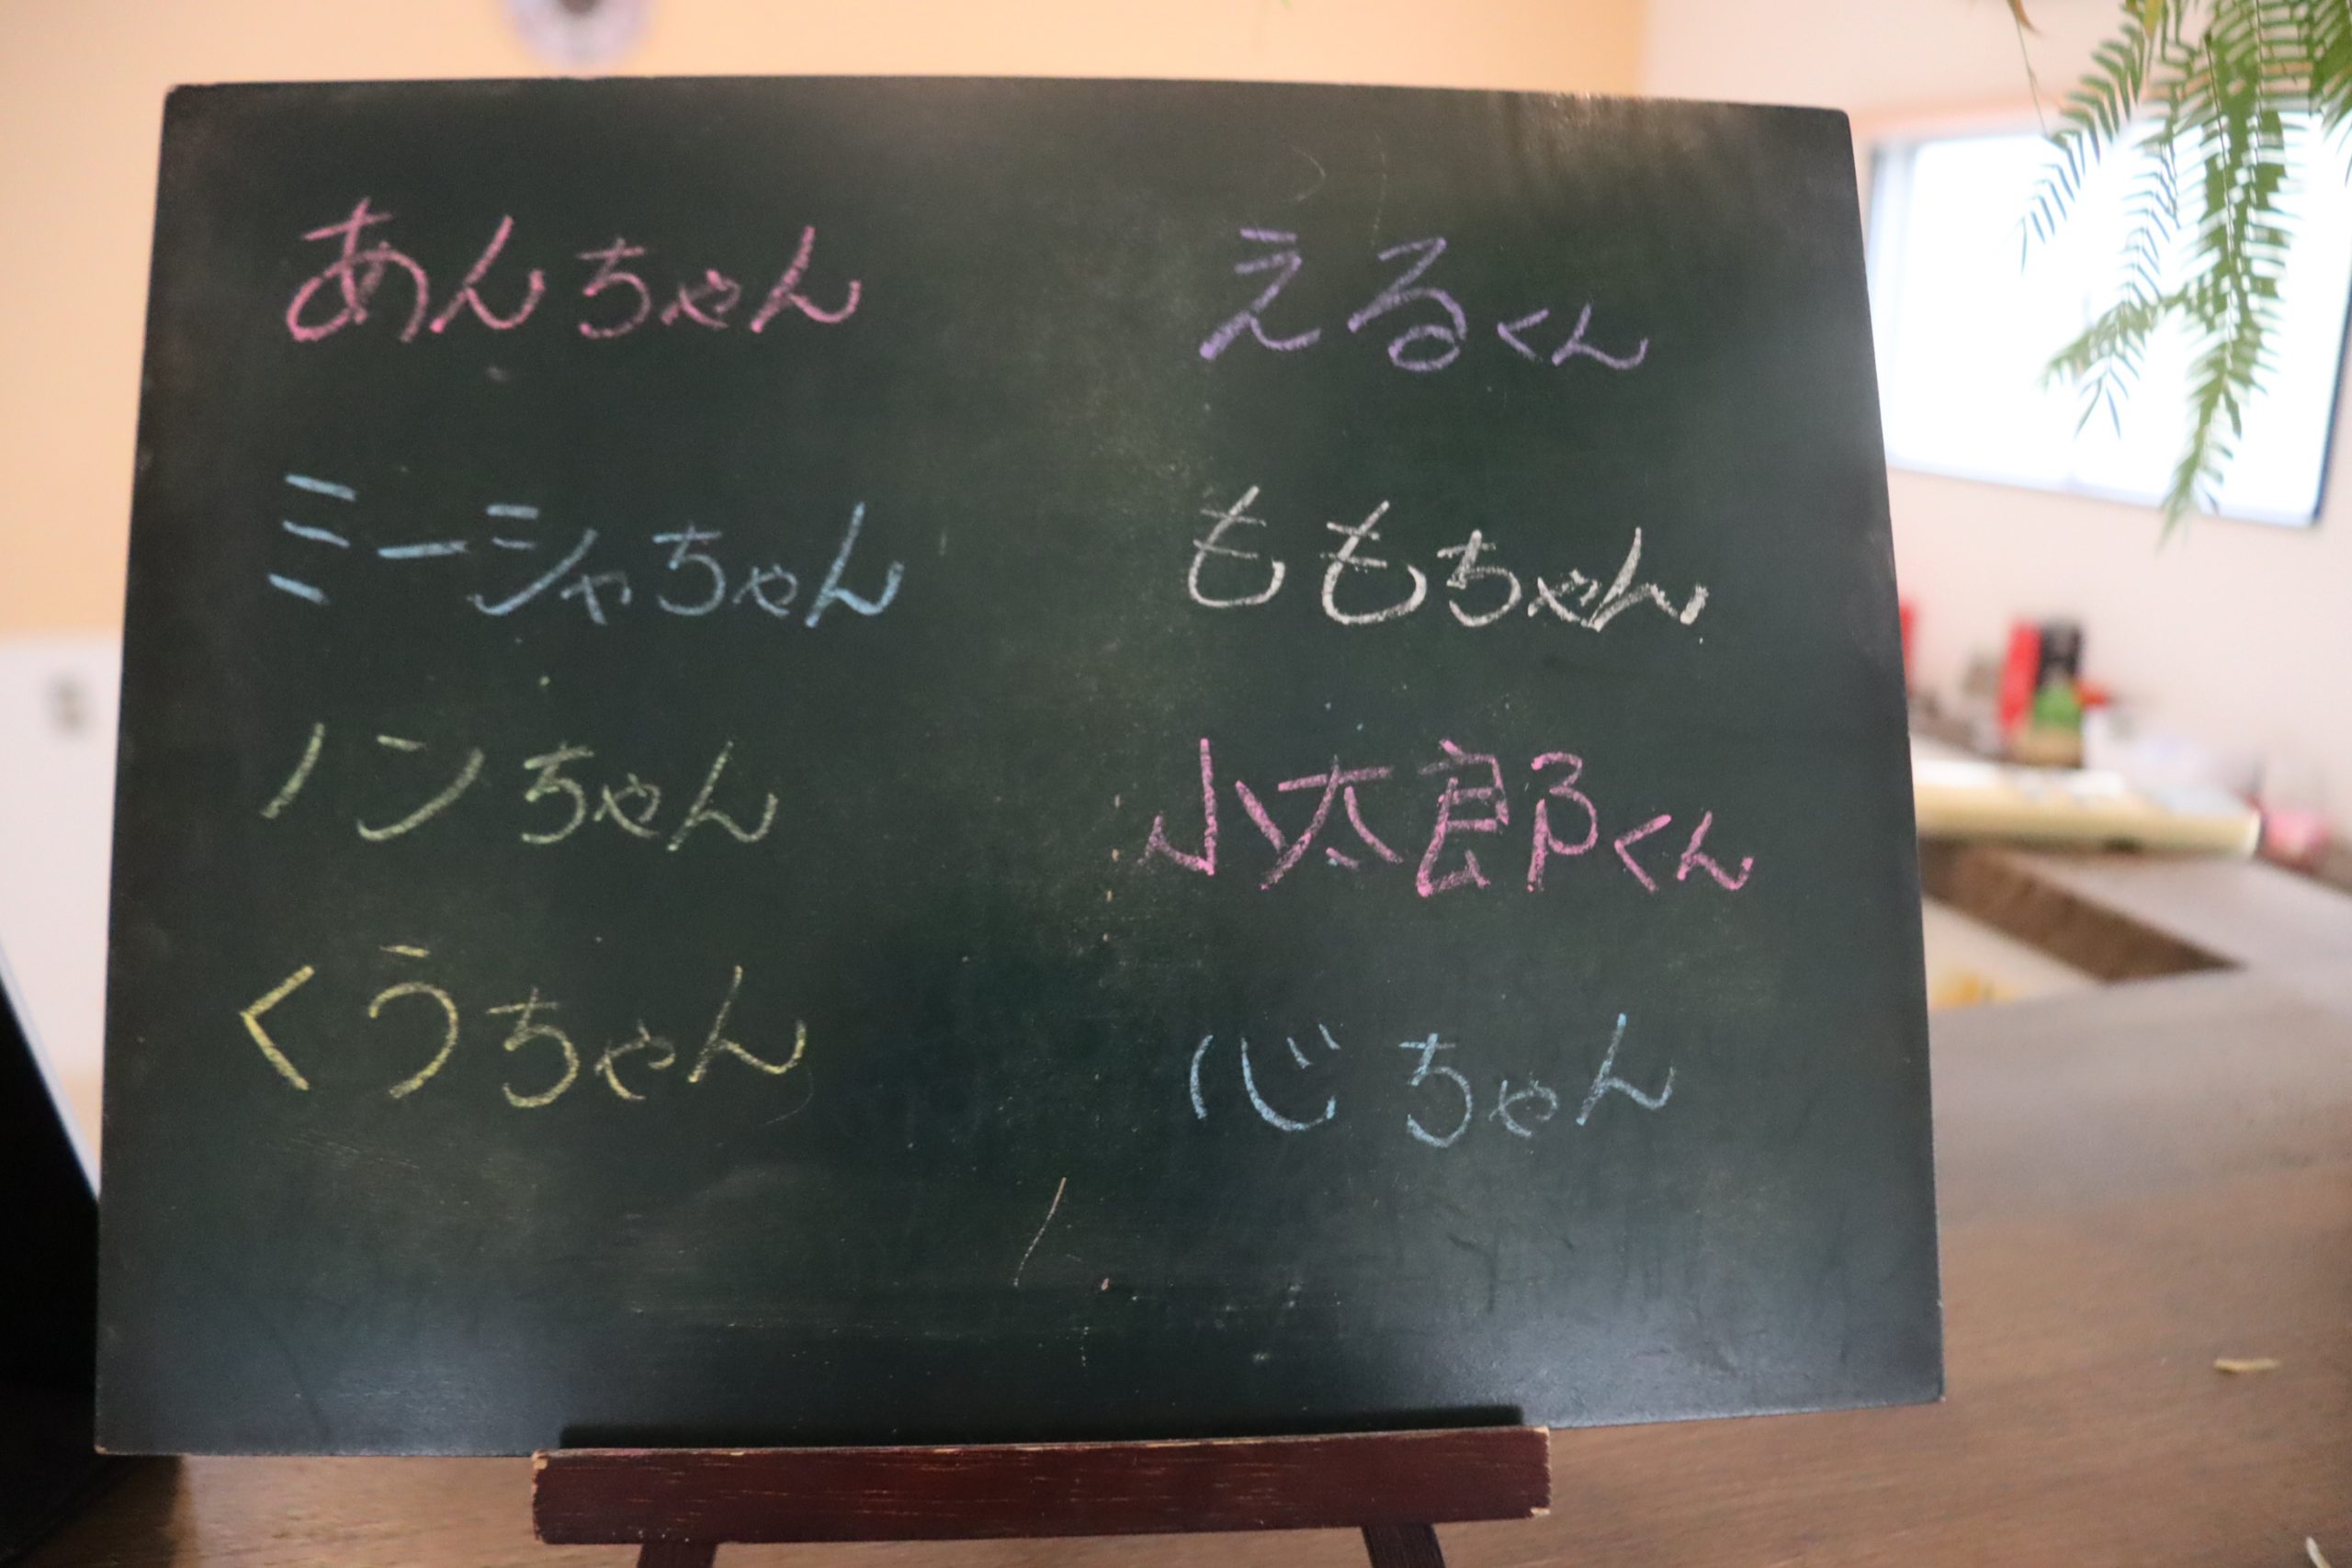 あんちゃん
ミーシャちゃん
ノンちゃん
くうちゃん
えるくん
ももちゃん
小太郎くん
心ちゃん